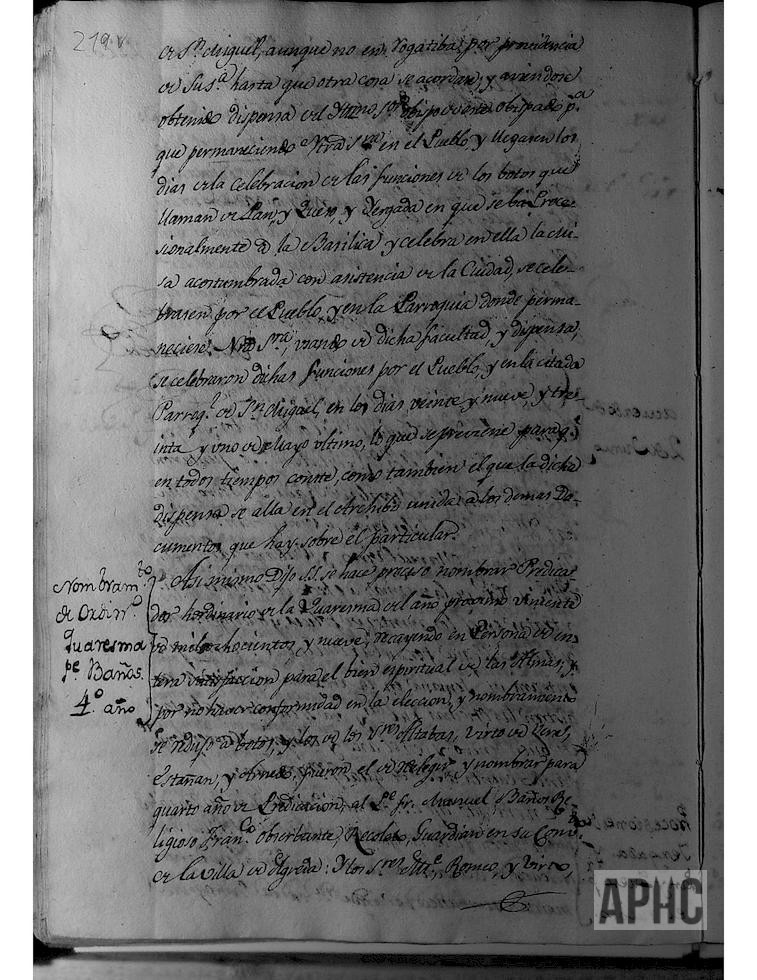 219 v
de Sn. Miguel, aunque no en Rogatiba por providencia
de Sus.a hasta que otra cosa se acordare, y aviendose
obtenido dispensa del Yltmo Sor. Obispo de este Obispado p.a
que permaneciendo Ntra Sra. en el Pueblo y llegasen los
dias de la celebracion de las funciones de los botos que
llaman de Pan, y Queso, y Yergada en que se ba Proce-
sionalmente a la Basilica y celebra en ella la Mi-
sa acostumbrada con asistencia de la Ciudad, se cele-
brasen por el Pueblo, y en la Parroquia donde perma-
neciese Ntra Sra., usando de dicha facultad, y dispensa,
se celebraron dichas funciones por el Pueblo, y en la citada
Parroq.l de Sn. Miguel, en los dias veinte y nueve, y tre-
inta y uno de Mayo ultimo, lo que se previene para q.e
en todos tiempos conste, como tambien el que la dicha
dispensa se alla en el Archibo unida a los demas Do-
cumentos que hay sobre el particular.
Nombram.to
de Ordin.o
Quaresma
pe. Baños.
4.o año
Asimismo Dijo S.S. se hace preciso nombrar Predica-
dor hordinario de la Quaresma del año proximo viniente
de mil ochocientos y nueve, recayendo en Persona de en-
tera satisfaccion para el bien espiritual de las Almas, y
por no haver conformidad en la eleccion, y nombramiento
se redujo a botos, y los de los Sres Altabas, Virto de Vera,
Estañan, y Arnedo, fueron el de relegir y nombrar para
quarto año de Predicacion, al Pe. fr. Manuel Baños Re-
ligioso Fran.co Obserbante, Recoleto, Guardian en su Conv.to
de la Villa de Agreda: Y los Sres Romeo, y Virto,
APHC